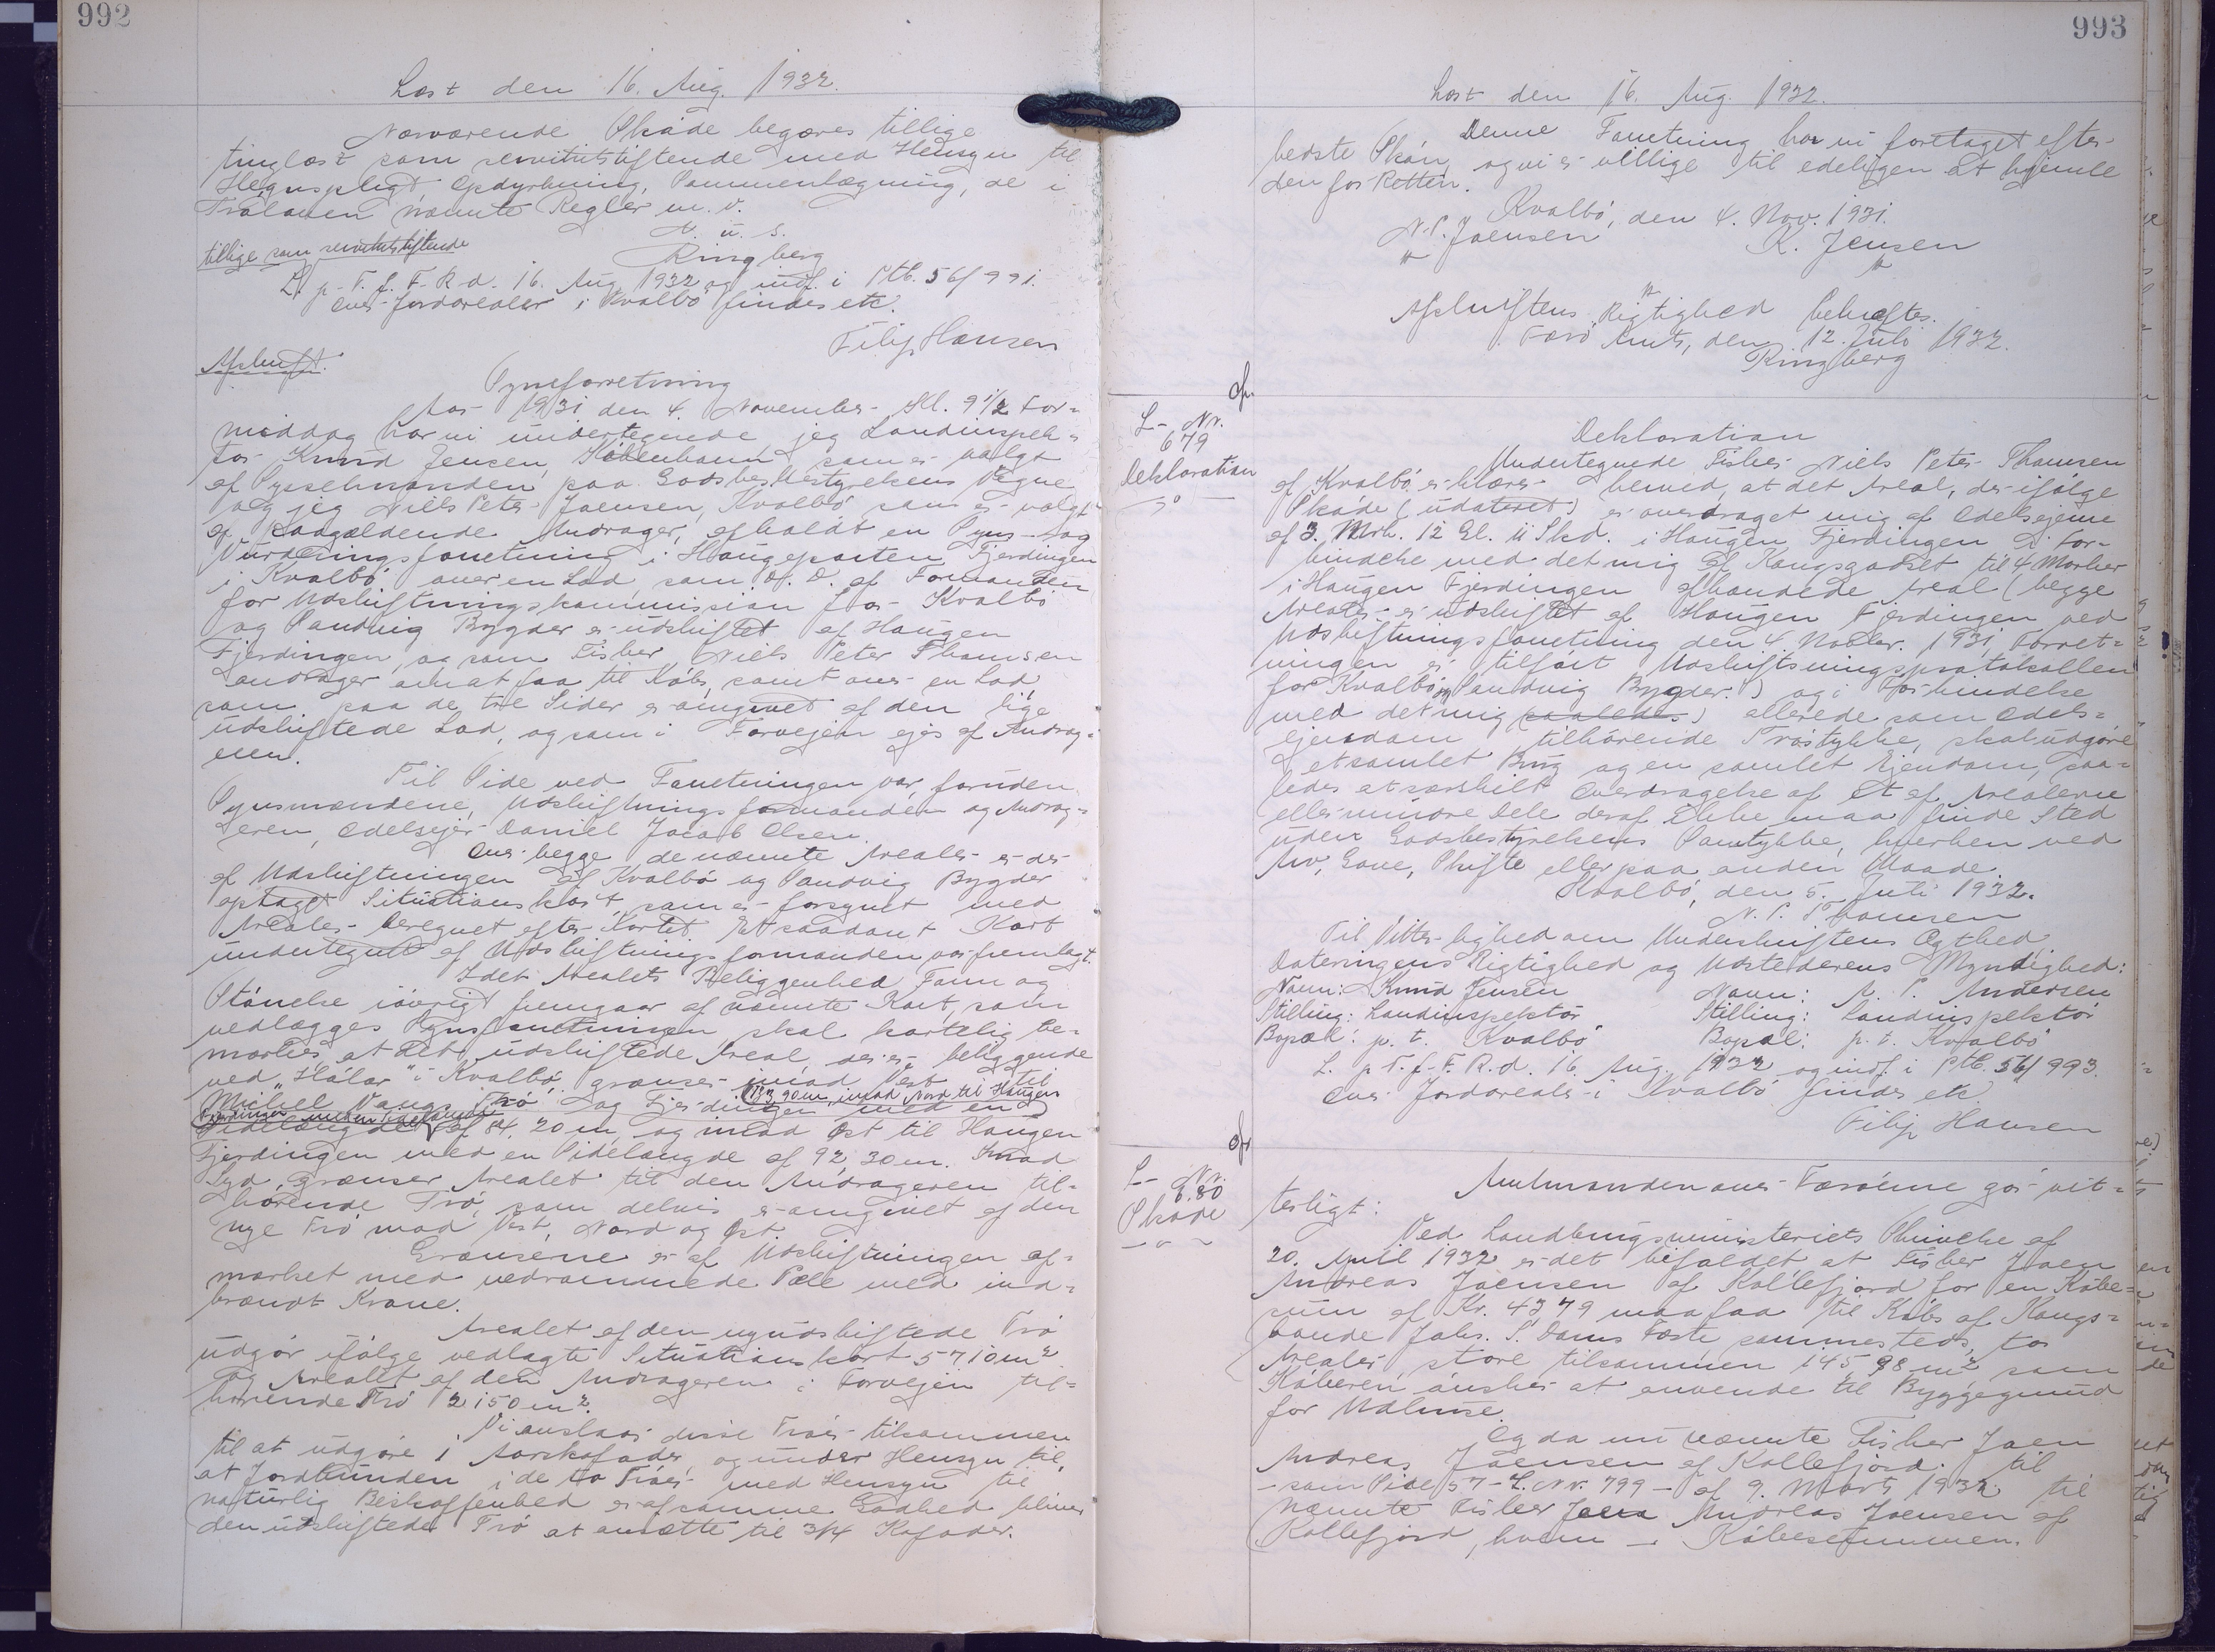 992
Læst den 16. Aug. 1932.
Nærværende Skøde begæres tillige
tinglæst som servitutstiftende med Hensyn til
Hegnspligt, Opdyrkning, Sammenlægning, de i
Trøloven nævnte Regler m. v.
D. u. s.
Ringberg
tillige som servitutstiftende
L. p. T. f. F. R. d. 16. Aug. 1932 og indf. i Ptb. 56/991.
Over Jordarealer i Kvalbø findes etc.
Filip Hansen
Afskrift.
Synsforretning
Aar 1931 den 4. November Kl. 9 1/2 For=
middag har vi undertegnede, jeg Landinspek=
tør Knud Jensen, København, som er valgt
af Sysselmanden paa Godsbestyrelsens Vegne
og jeg Niels Peter Joensen, Kvalbø som er valgt
af paagældende Andrager, afholdt en Syns- og
Vurderingsforretning i Haugeparten Fjerdingen
i Kvalbø over en Lod, som D. D. af Formanden
for Udskiftningskommission for Kvalbø
og Sandvig Bygder er udskiftet af Haugen
Fjerdingen, og som Fisker Niels Peter Thomsen
andrager om at faa til Købs, samt over en Lod
som paa de tre Sider er omgivet af den lige
udskiftede Lod, og som i Forvejen ejes af Andrag=
eren.
Til Stede ved Forretningen var, foruden
Synsmændene, Udskiftningsformanden og Andrag=
eren, Odelsejer Daniel Jacob Olsen.
Over begge de nævnte Arealer er der
af Udskiftningen af Kvalbø og Sandvig Bygder
optaget Situationskort som er forsynet med
Arealer beregnet efter Kortet. Et saadant Kort
undertegnet af Udskiftningsformanden var fremlagt.
Idet Arealets Beliggenhed, Form og
Størrelse iøvrigt fremgaar af nævnte Kort, som
vedlægges Synsforretningen, skal kortelig be=
mærkes, at det udskiftede Areal, der er beliggende
ved "Hálar" i Kvalbø, grænser imod Vest til
Michel Vangs Trø og Fjerdingen med en
33,90 m, imod Nord til Haugen
Fjerdingen med en Sidelængde
Sidelængde af 84,20 m, og imod Øst til Haugen
Fjerdingen med en Sidelængde af 92,30 m. Imod
Syd, grænser Arealet til den Andrageren til=
hørende Trø, som delvis er omgivet af den
nye Trø mod Vest, Nord og Øst.
Grænserne er af Udskiftningen af=
mærket med nedrammede Pæle med ind=
brændt Krone.
Arealet af den nyudskiftede Trø
udgør ifølge vedlagte Situationskort 5710 m²
og Arealet af den Andrageren i Forvejen til=
hørende Trø 2150 m².
Vi anslaar disse Trøer tilsammen
til at udgøre 1 Aarskofoder, og under Hensyn til,
at Jordbunden i de to Trøer med Hensyn til
naturlig Beskaffenhed er af samme Godhed bliver
den udskiftede Trø at ansætte til 3/4 Kofoder.
993
Læst den 16. Aug. 1932.
Denne Forretning har vi foretaget efter
bedste Skøn, og vi er villige til edeligen at hjemle
den for Retten.
Kvalbø, den 4. Nov. 1931.
N. P. Joensen K. Jensen
Afskriftens Rigtighed bekræftes.
Færø Amt, den 12. Juli 1932.
Ringberg
L. Nr.
679
Deklaration
Deklaration
Undertegnede Fisker Niels Peter Thomsen
af Kvalbø erklærer herved, at det Areal, der ifølge
Skøde (udateret) er overdraget mig af Odelsejerne
af 3 Mrk. 12 Gl. 11 Skd. i Haugen Fjerdingen i For=
bindelse med det mig af Kongsgodset til 4 Marker
i Haugen Fjerdingen afhændede Areal (begge
Arealer er udskiftet af Haugen Fjerdingen ved
Udskiftningsforretning den 4. Novbr. 1931. Forret=
ningen er tilført Udskiftningsprotokollen
for Kvalbø og Sandvig Bygder.) og i Forbindelse
med det mig (saaledes) allerede som Odels=
ejendom tilhørende Trøstykke, skal udgøre
et samlet Brug og en samlet Ejendom, saa=
ledes at særskilt Overdragelse af et af Arealerne
eller mindre Dele deraf ikke maa finde Sted
uden Godsbestyrelsens Samtykke, hverken ved
Arv, Gave, Skifte eller paa anden Maade.
Kvalbø, den 5. Juli 1932.
N. P. Thomsen
Til Vitterlighed om Underskriftens Ægthed
Dateringens Rigtighed og Udstederens Myndighed:
Navn: Knud Jensen Navn: A. P. Andersen
Stilling: Landinspektør Stilling: Landinspektør
Bopæl: p. t. Kvalbø Bopæl: p. t. Kvalbø
L. p. T. f. F. R. d. 16. Aug. 1932 og indf. i Ptb. 56/993.
Over Jordarealer i Kvalbø findes etc.
Filip Hansen
L. Nr.
680
Skøde
Amtmanden over Færøerne gør vit=
terligt:
Ved Landbrugsministeriets Skrivelse af
20. April 1932 er det bifaldet at Fisker Joen
Andreas Joensen af Kollefjord for en Købe=
sum af Kr. 43 79 maa faa til Købs af Kongs=
bonde Johs. P. Dams Fæste sammesteds, to
Arealer, store tilsammen 145,98 m² som
Køberen ønsker at anvende til Byggegrund
for Udhuse.
Og da nu nævnte Fisker Joen
Andreas Joensen af Kollefjord. til
- som Side 57 - L. Nr. 799 - af 9. Marts 1932 til
nævnte Fisker Joen Andreas Joensen af
Kollefjord, hvem - Købesummen.